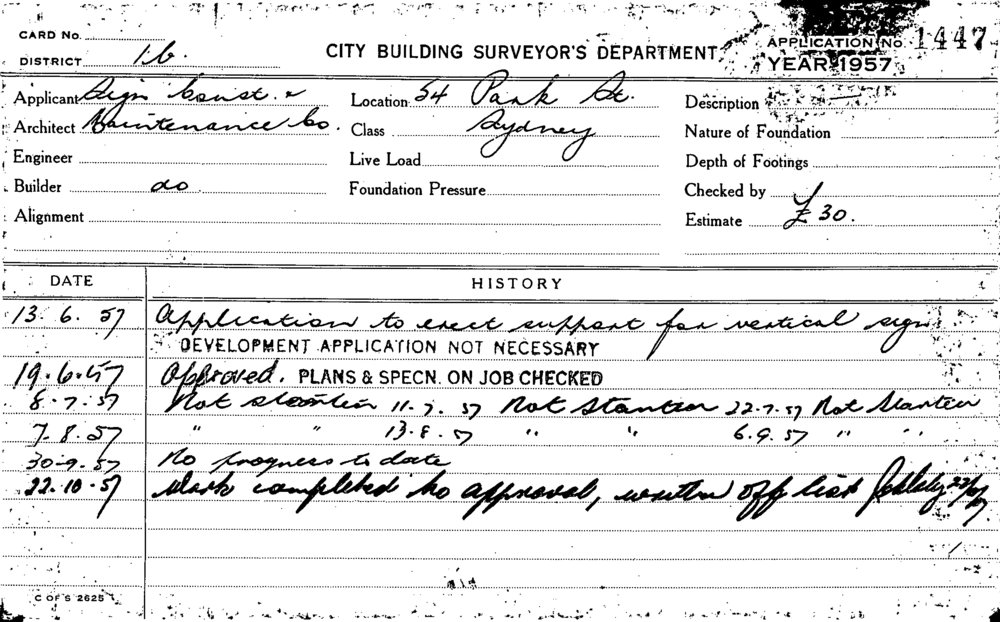 CARD No.
DISTRICT 1b.
CITY BUILDING SURVEYOR'S DEPARTMENT
APPLICATION No. 1447
YEAR 1957
Applicant Sign Const. &
Location 54 Park St.
Description
Architect Maintenance Co.
Class Sydney
Nature of Foundation
Engineer
Live Load
Depth of Footings
Builder do
Foundation Pressure
Checked by
Alignment
Estimate £30.
DATE HISTORY
13. 6. 57 Application to erect support for vertical sign
DEVELOPMENT APPLICATION NOT NECESSARY
19.6.57 Approved. PLANS & SPECN. ON JOB CHECKED
8.7.57 Not started 11.7.57 Not started 22.7.57 Not started
7.8.57 " " 13.8.57 " " 6.9.57 " "
30-9.57 No progress to date
22.10.57 Work completed to approval, written off list
C OF S 2625